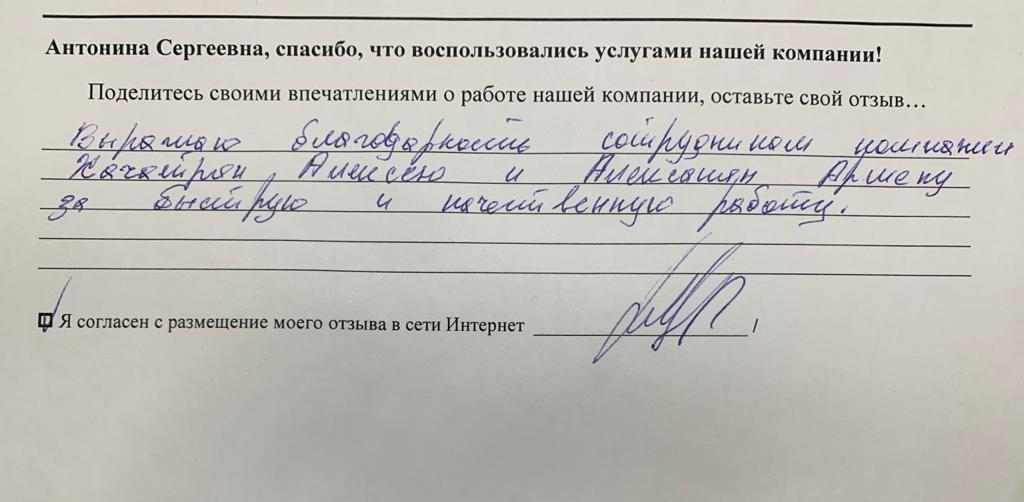 Антонина Сергеевна, спасибо, что воспользовались услугами нашей компании!
Поделитесь своими впечатлениями о работе нашей компании, оставьте свой отзыв…
Выражаю благодарность сотрудникам компании
Хачатрян Алексею и Алексанян Арменy
за быструю и качественную работу.
Я согласен с размещение моего отзыва в сети Интернет /